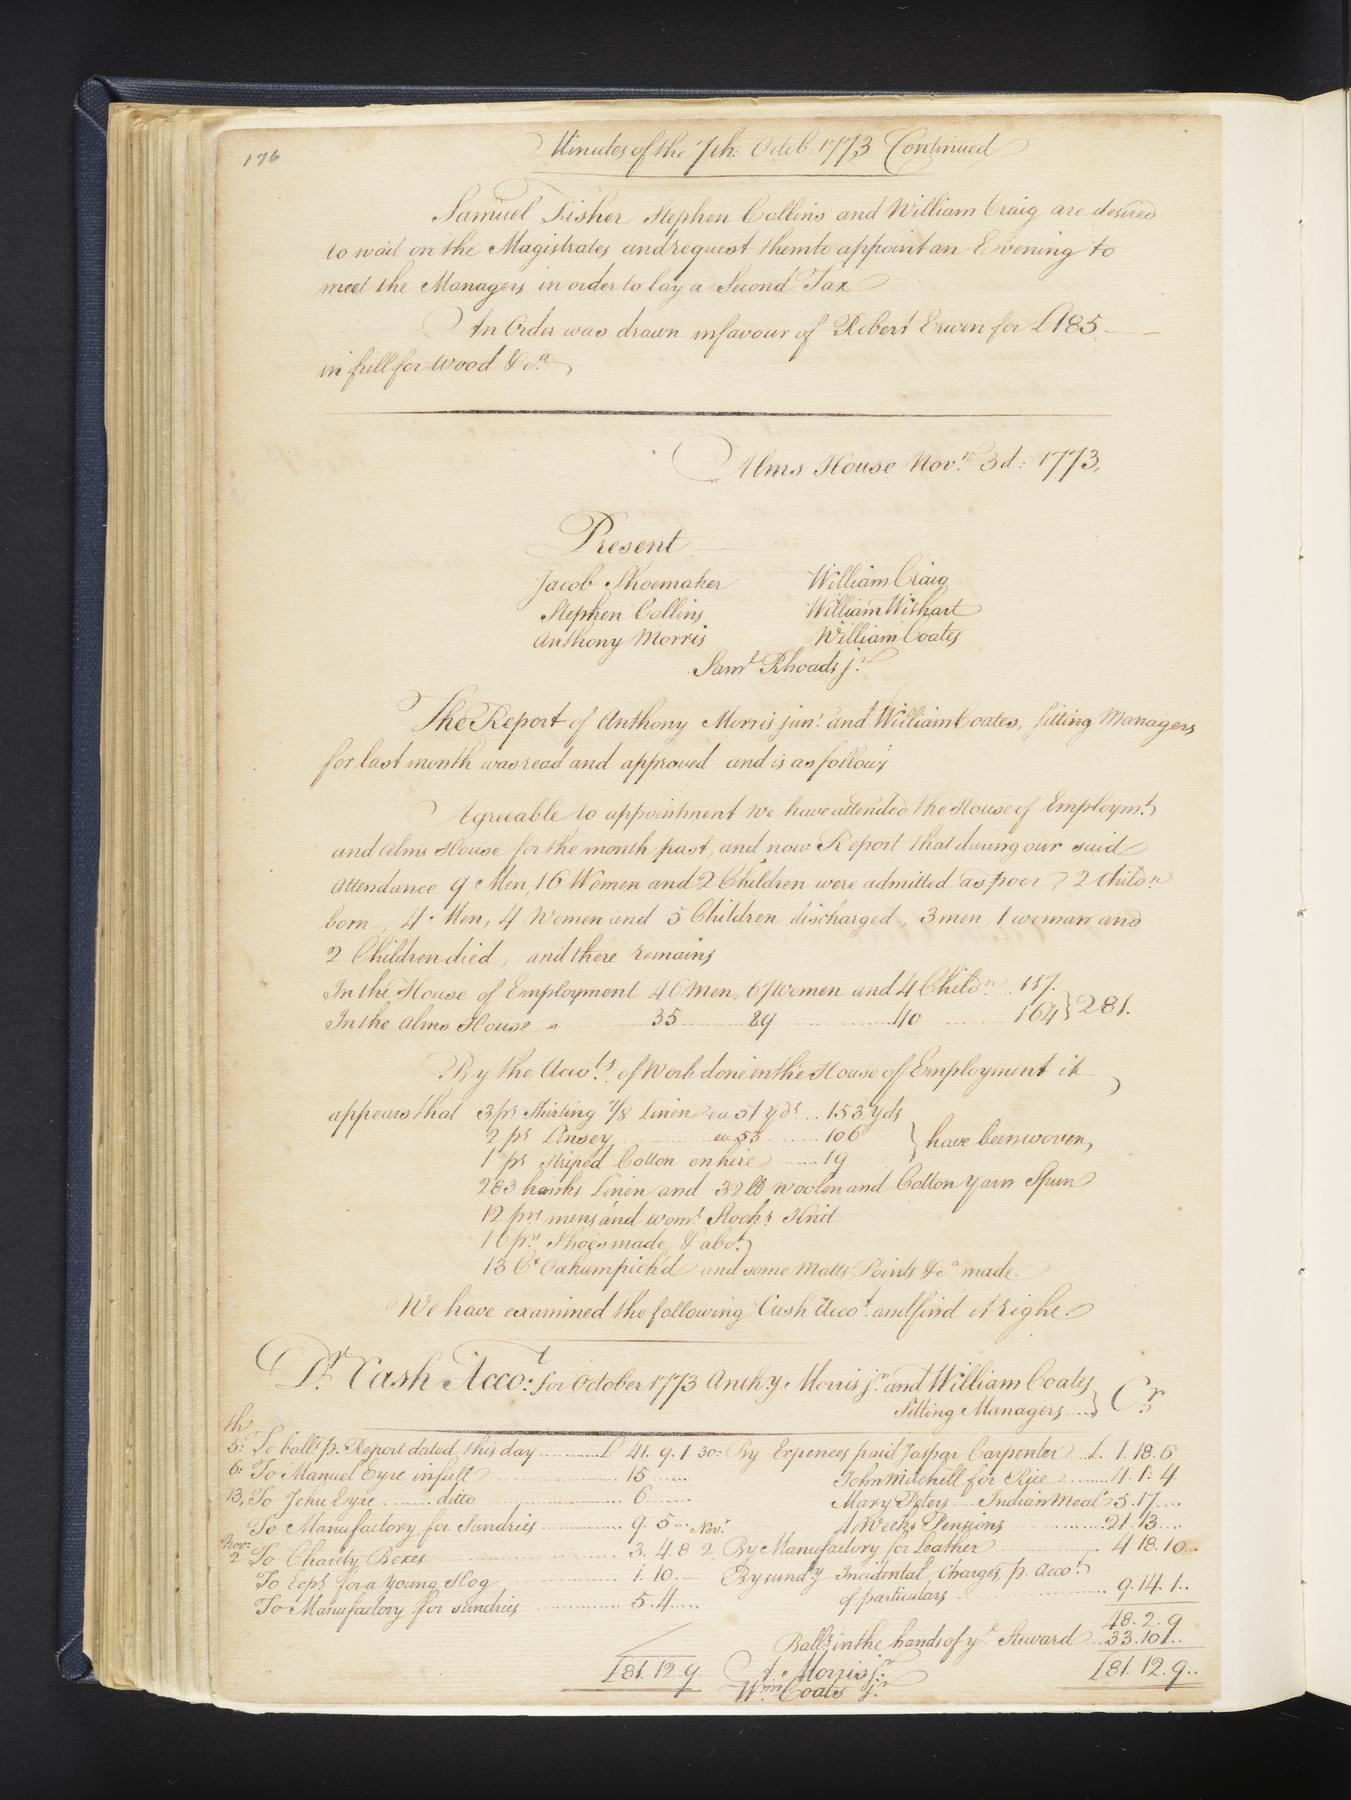 176
Minutes of the 7th: Octob. 1773 Continued
Samuel Fisher Stephen Collins and William Craig are desired
to wait on the Magistrates and request them to appoint an Evening to
meet the Managers in order to lay a Second Tax
An Order was drawn in favour of Robert Erwin for £185
in full for Wood &ca
Alms House Novr. 3d: 1773,
Present
Jacob Shoemaker William Craig
Stephen Collins William Wishart
Anthony Morris William Coates
Saml Rhoads jr
The Report of Anthony Morris junr. and William Coates, sitting Managers
for last month was read and approved, and is as follows
Agreable to appointment we have attended the House of Employmt.
and Alms House for the month past, and now Report that during our said
Attendance 9 Men, 16 Women and 2 Children were admitted as poor, 2 Childn
born, 4 Men, 4 Women and 5 Children discharged, 3 men 1 woman and
2 Children died, and there remains
In the House of Employment 46 Men, 67 women and 4 Childn .. 117.
In the Alms House " 35 89 40 164 } 281.
By the Accots. of Work done in the House of Employment it
appears that 3 ps Shirting 7/8 Linen ea 51 yds .. 153 yds
2 ps Linsey ea 53 106 } have been woven,
1 ps Striped Cotton entire 19
283 hanks Linen and 32 lb woolen and Cotton yarn Spun
12 prs mens and woms. Stocks. Knit
16 prs. Shoes made & abot.
13 Ct Oakum pick'd and some Matts Points &ca made.
We have examined the following Cash Accot. and find it right.
Dr. Cash Accot. for October 1773 Anthy Morris jr. and William Coates
Sitting Managers } Cr.
5th: To ballce p. Report dated this day £ 41. 9. 1 30: By Expences paid Jaspar Carpenter £. 1. 18. 6
6: To Manuel Eyre in full 15 John Mitchell for Rice 4. 1. 4
13, To Jehu Eyre ditto 6 Mary Peters Indian Meal 5. 17
To Manufactory for Sundries 9. 5 4 Weeks Pensions 21. 13
Novr: 2 To Charity Boxes 3. 4. 8 Novr 2 By Manufactory for Leather 4. 18. 10
To for a Young Hog 1. 10. By sundy Incidental Charges p. Accot.
To Manufactory for sundries 5. 4 of particulars 9. 14. 1
48. 2. 9
Ballce in the hands of ye. Steward 33. 10
£81. 12. 9 A. Morris jr. £81. 12. 9
Wm Coats jr.